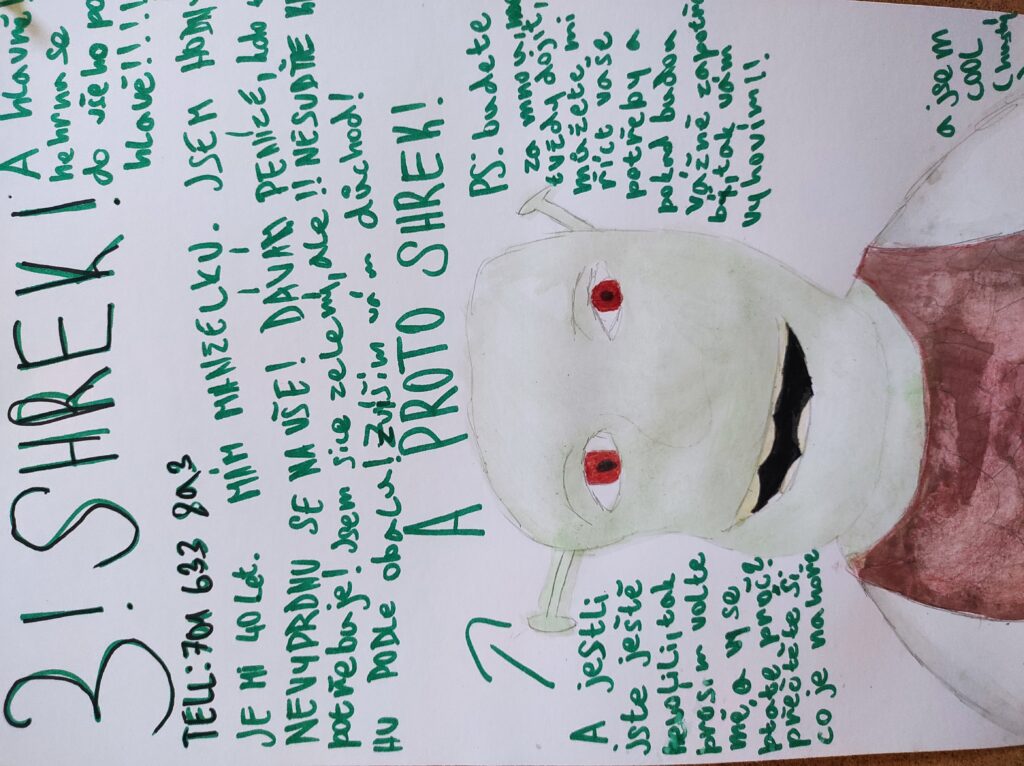 3! SHREK!
TELL: 701 633 893
A hlavně
nehrnu se
do všeho po
hlavě!!!!
JE MI 40 let. MÁM MANŽELKU. JSEM HODNÝ
NEVYPRDNU SE NA VŠE! DÁVÁM PENÍZE, kdo
potřebuje! Jsem sice zelený, ale !! NESUĎTE
HU PODLE obalu! Zvýším vám důchod!
A PROTO SHREK!
A jestli
jste ještě
nevolili, tak
prosím volte
mě, a vy se
ptáte proč?
přečtěte si
co je nahoře
PS: budete
za mnou
tvédy dojít,
můžete mi
říct vaše
potřeby a
pokud budou
vážně
být, tak vám
vyhovím!!
a jsem
cool